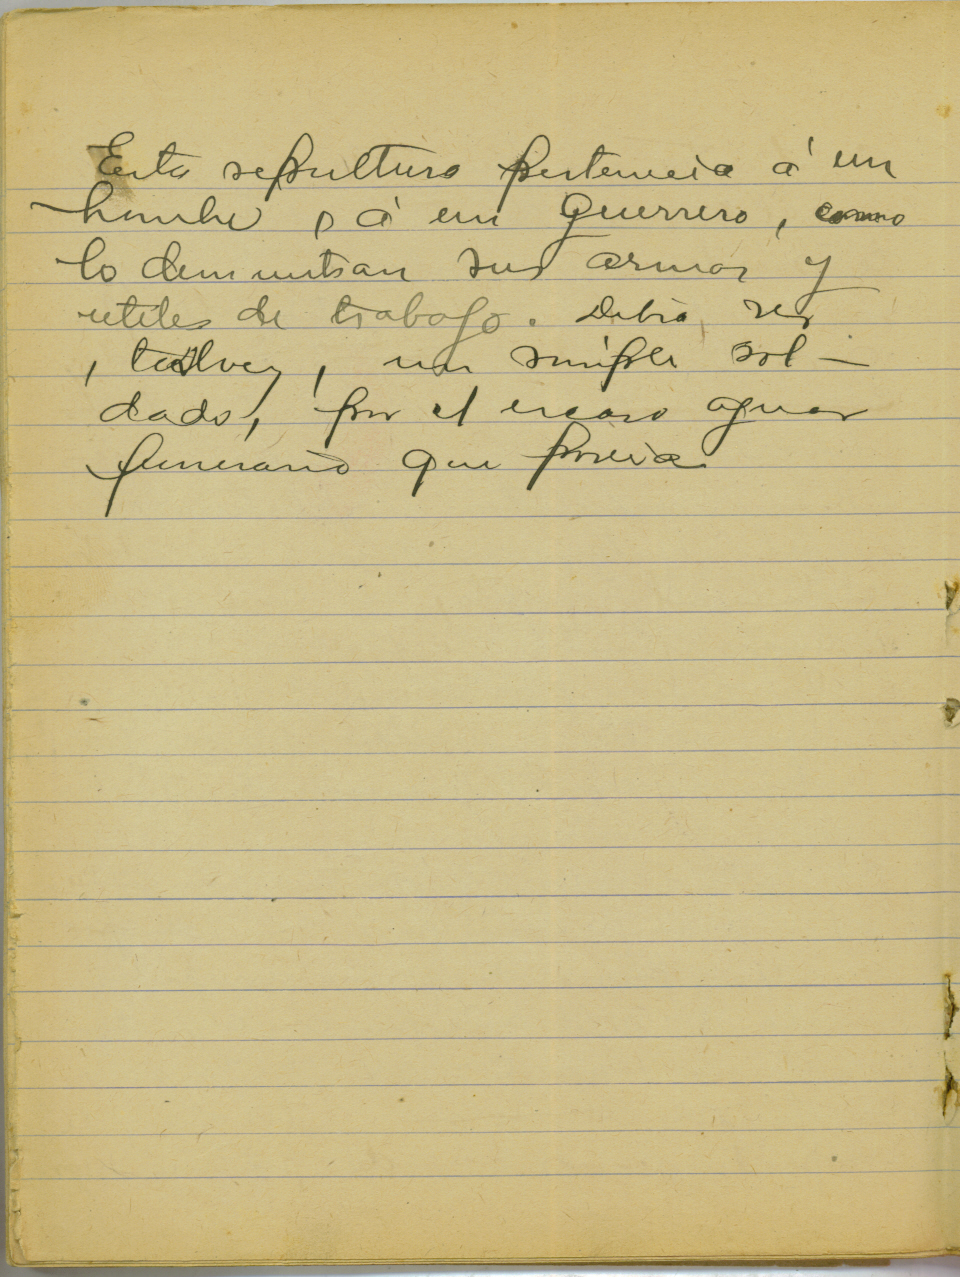 Esta sepultura pertenecia á un
hombre, á un guerrero, como
lo demuestran sus armas y
utiles de trabajo. Debió ser
, talvez, un simple sol-
dado, por el escaso ajuar
funerario que poseia